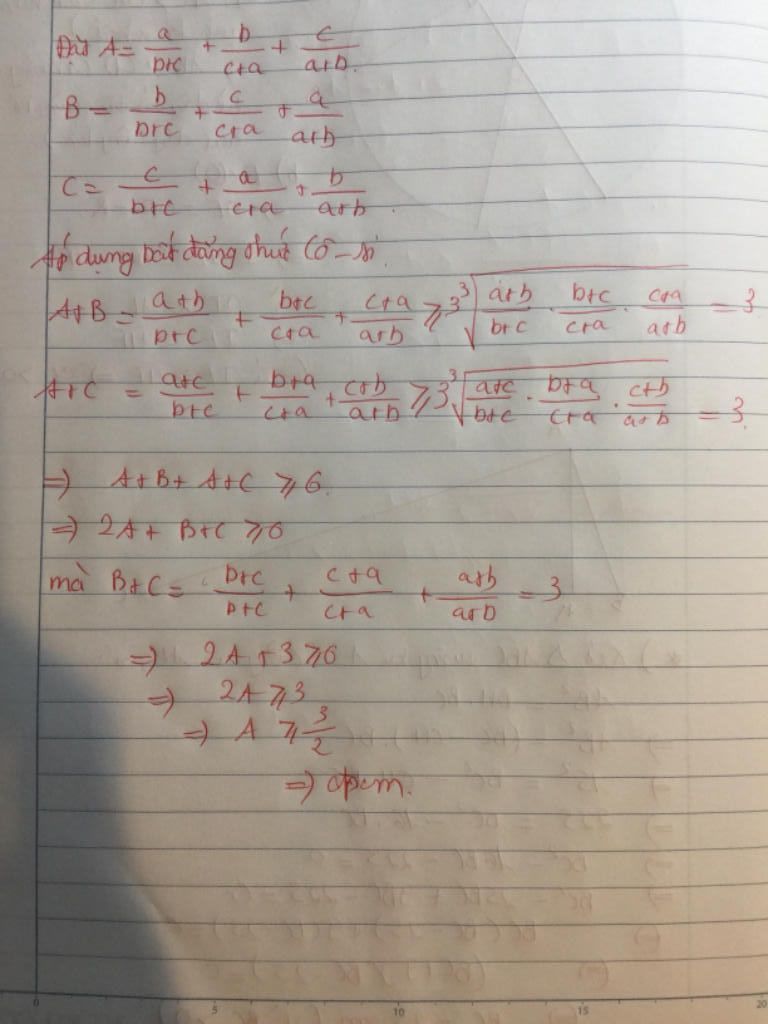 Đặt A = a/(b+c) + b/(c+a) + c/(a+b).
B = b/(b+c) + c/(c+a) + a/(a+b)
C = c/(b+c) + a/(c+a) + b/(a+b).
Áp dụng bất đẳng thức Cô-si
A+B = (a+b)/(b+c) + (b+c)/(c+a) + (c+a)/(a+b) ⩾ 3∛((a+b)/(b+c) · (b+c)/(c+a) · (c+a)/(a+b)) = 3
A+C = (a+c)/(b+c) + (b+a)/(c+a) + (c+b)/(a+b) ⩾ 3∛((a+c)/(b+c) · (b+a)/(c+a) · (c+b)/(a+b)) = 3.
=> A+B+A+C ⩾ 6.
=> 2A + B+C ⩾ 6
mà B+C = (b+c)/(b+c) + (c+a)/(c+a) + (a+b)/(a+b) = 3
=> 2A + 3 ⩾ 6
=> 2A ⩾ 3
=> A ⩾ 3/2
=> đpcm.
0 5 10 15 20